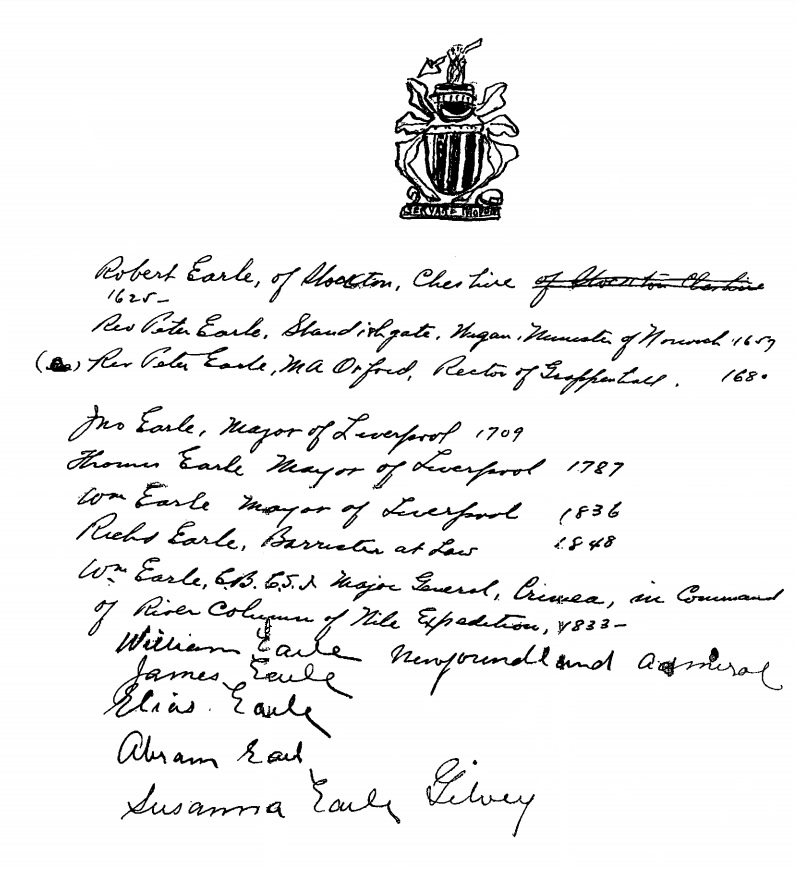 SERVARE MODUM
Robert Earle, of Stockton, Cheshire of Stockton Cheshire
1625-
Rev Peter Earle, Standishgate, Wigan, Minister of Norwich 165
Rev Peter Earle, MA Oxford, Rector of Grappenhall. 1680
Jno Earle, Mayor of Liverpool 1709
Thomas Earle Mayor of Liverpool 1787
Wm Earle Mayor of Liverpool 1836
Richd Earle, Barrister at Law 1848
Wm Earle, C.B. C.S.I. Major General, Crimea, in Command
of River Column of Nile Expedition, 1833-
William Earle Newfoundland Admiral
James Earle
Elias Earle
Abram Earl
Susanna Earle Gilvey